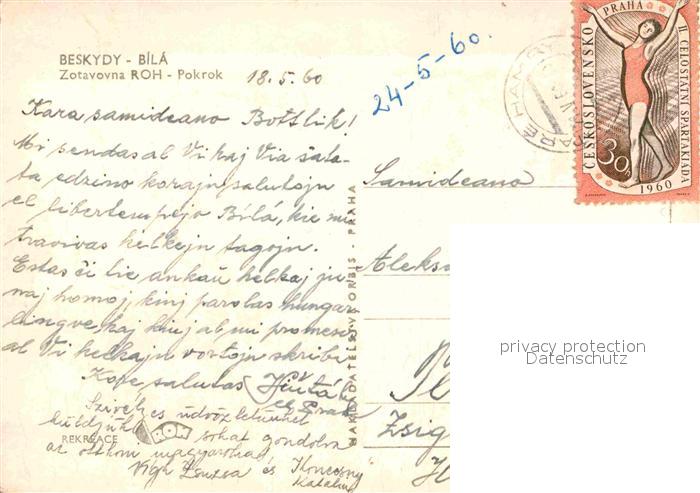 BESKYDY - BÍLÁ
Zotavovna ROH - Pokrok
18.5.60
24-5-60.
Kara samideano Bottlik!
Mi sendas al Vi kaj Via ŝata-
ta edzino korajn salutojn
el libertempejo Bílá, kie mi
travivas kelkajn tagojn.
Estas ĉi tie ankaŭ kelkaj ju-
naj homoj, kiuj parolas hungar
lingve kaj kiuj al mi promesis
al Vi kelkajn vortojn skribi
Kore salutas
el
Szívélyes üdvözletünket
küldjük sokat gondolva
az otthoni magyarokra
Vigh Zsuzsa és
Katalin
REKREACE
ROH
NAKLADATELSTVÍ ORBIS - PRAHA
Samideano
Aleks
Zsig
ČESKOSLOVENSKO
PRAHA
II. CELOSTÁTNÍ SPARTAKIÁDA
30h
1960
STARÉ HAMRY
privacy protection
Datenschutz